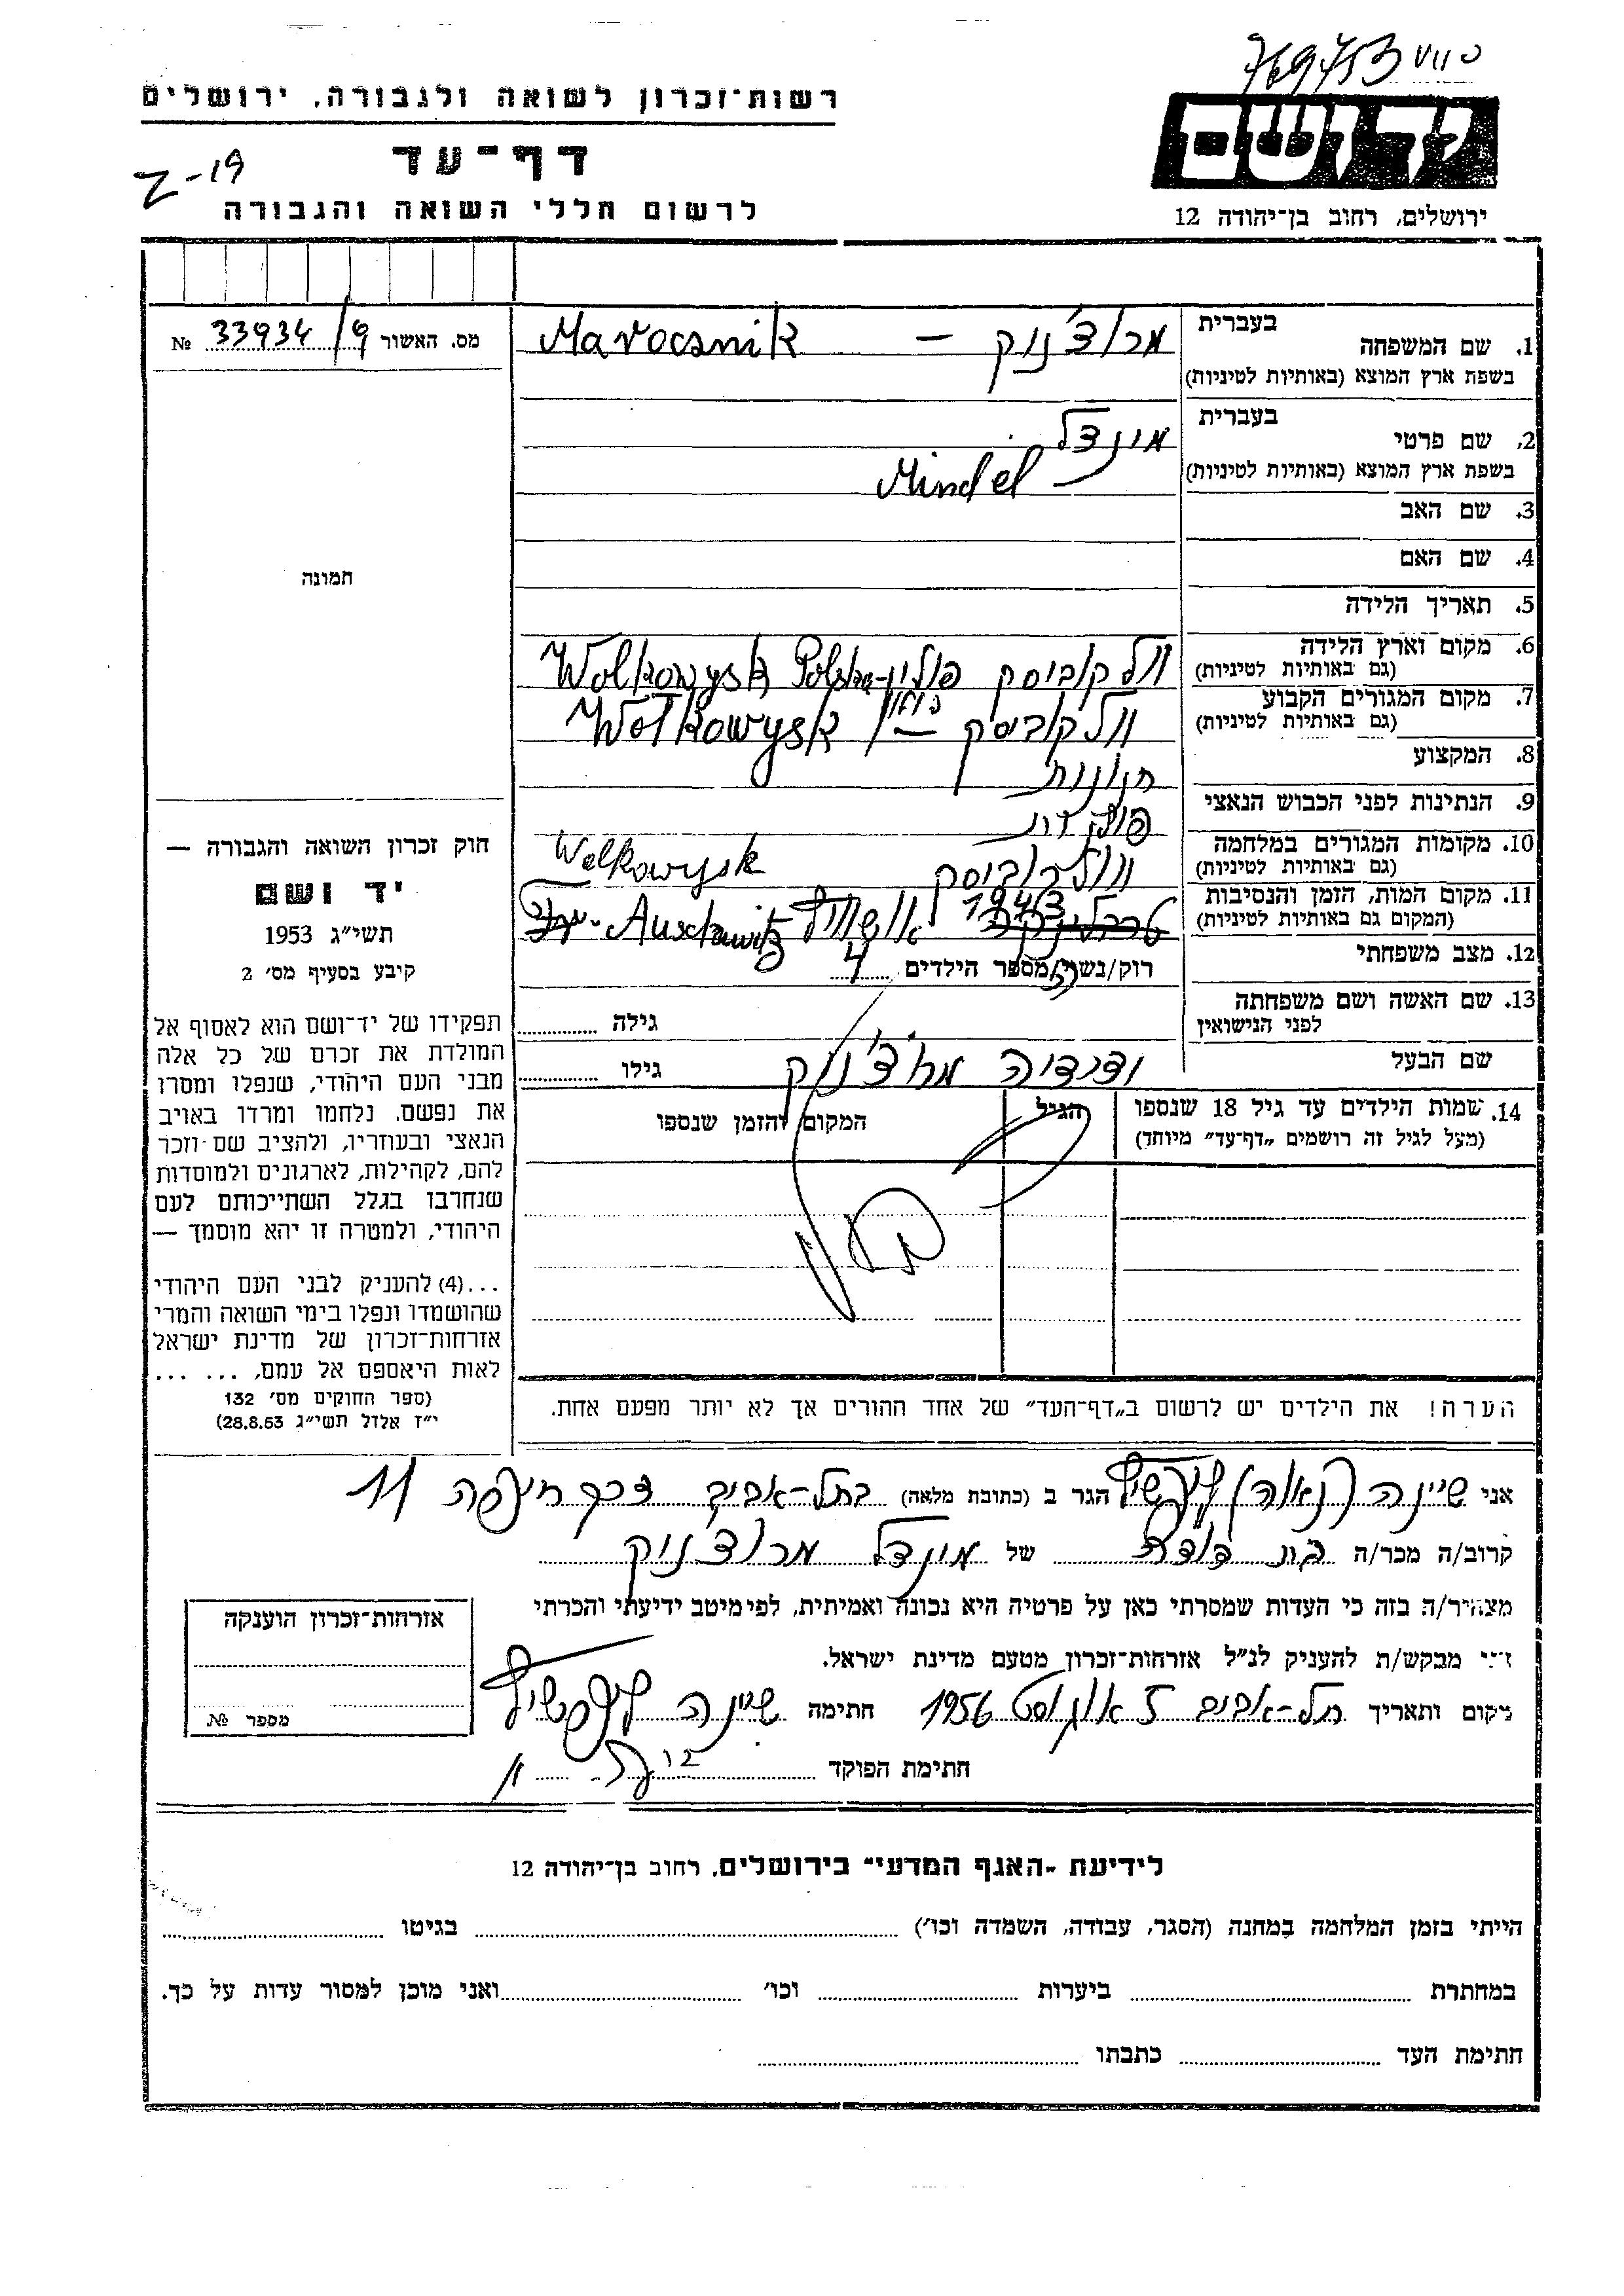 769753
רשות־זכרון לשואה ולגבורה, ירושלים
ושם
דף־עד
Z-19
לרשום חללי השואה והגבורה
ירושלים, רחוב בן־יהודה 12
מס. האשור 33934/9 №
1. שם המשפחה
בעברית
בשפת ארץ המוצא (באותיות לטיניות)
מרוצ'ניק – Marocsnik
2. שם פרטי
בעברית
בשפת ארץ המוצא (באותיות לטיניות)
מינדל
Mindel
3. שם האב
4. שם האם
תמונה
5. תאריך הלידה
6. מקום וארץ הלידה
(גם באותיות לטיניות)
וולקוביסק פולין Wolkowysk Polska
7. מקום המגורים הקבוע
(גם באותיות לטיניות)
וולקוביסק – Wolkowysk
8. המקצוע
חנונית
9. הנתינות לפני הכבוש הנאצי
פולנית
10. מקומות המגורים במלחמה
(גם באותיות לטיניות)
וולקוביסק Wolkowysk
11. מקום המות, הזמן והנסיבות
(המקום גם באותיות לטיניות)
טרבלינקה 1943 אושוויץ Auschwitz
12. מצב משפחתי
רוק/נשוי/מספר הילדים 4
13. שם האשה ושם משפחתה
לפני הנישואין
גילה
שם הבעל
מרוצ'ניק
גילו
14. שמות הילדים עד גיל 18 שנספו
(מעל לגיל זה רושמים „דף־עד" מיוחד)
הגיל
המקום והזמן שנספו
הערה! את הילדים יש לרשום ב„דף־העד" של אחד ההורים אך לא יותר מפעם אחת.
חוק זכרון השואה והגבורה —
יד ושם
תשי״ג 1953
קיבע בסעיף מס׳ 2
תפקידו של יד־ושם הוא לאסוף אל
המולדת את זכרם של כל אלה
מבני העם היהודי, שנפלו ומסרו
את נפשם, נלחמו ומרדו באויב
הנאצי ובעוזריו, ולהציב שם וזכר
להם, לקהילות, לארגונים ולמוסדות
שנחרבו בגלל השתייכותם לעם
היהודי, ולמטרה זו יהא מוסמך —
...(4) להעניק לבני העם היהודי
שהושמדו ונפלו בימי השואה והמרי
אזרחות־זכרון של מדינת ישראל
לאות היאספם אל עמם, ... ...
(ספר החוקים מס׳ 132
י״ז אלול תשי״ג 28.8.53)
אני שיינה (נאוה) ליפשיץ הגר ב (כתובת מלאה) בתל-אביב דרך חיפה 11
קרוב/ה מכר/ה בת דודה של מינדל מרוצ'ניק
מצהיר/ה בזה כי העדות שמסרתי כאן על פרטיה היא נכונה ואמיתית, לפי מיטב ידיעתי והכרתי
אני מבקש/ת להעניק לנ״ל אזרחות־זכרון מטעם מדינת ישראל.
מקום ותאריך תל-אביב 5 אוגוסט 1956 חתימה שיינה ליפשיץ
חתימת הפוקד
אזרחות־זכרון הוענקה
מספר №
לידיעת „האגף המדעי" בירושלים, רחוב בן־יהודה 12
הייתי בזמן המלחמה במחנה (הסגר, עבודה, השמדה וכו׳) בגיטו
במחתרת ביערות וכו׳ ואני מוכן למסור עדות על כך.
חתימת העד כתבתו